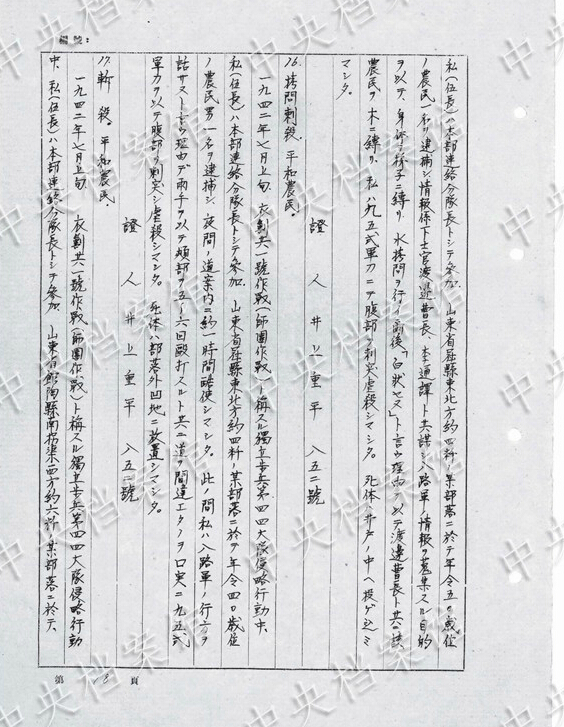 編號:
私(伍長)ハ本部連絡分隊長トシテ参加、山東省屈縣東北方約四粁ノ某部落ニ於テ年令五〇歳位
ノ農民一名ヲ逮捕シ情報係下士官渡辺曹長、李通譯ト共謀シ八路軍ノ情報ヲ蒐集スル目的
ヲ以テ、身体ヲ梯子ニ縛リ、水拷問ヲ行イ而後、「白状セヌ」ト言ウ理由ヲ以テ渡邉曹長ト共ニ該
農民ヲ木ニ縛リ、私ハ九五式軍刀ニテ腹部ヲ刺突虐殺シマシタ。死体ハ井戸ノ中ヘ投ゲ込ミ
マシタ。
證人 井上重平 八五二號
16. 拷問刺殺、平和農民、
一九四二年七月上旬、衣劃共一號作戰(師團作戰)ト稱スル獨立歩兵第四四大隊侵略行動中、
私(伍長)ハ本部連絡分隊長トシテ参加、山東省屈縣東北方約四粁ノ某部落ニ於テ年令四〇歳位
ノ農民男一名ヲ逮捕シ、夜間ノ道案内ニ約一時間酷使シマシタ。此ノ間私ハ八路軍ノ行方ヲ
詰サストユウ理由デ両手ヲ以テ頬部ヲ五〜六回毆打スルト共ニ道ヲ間違エタノヲ口実ニ九五式
軍刀ヲ以テ腹部ヲ刺突シ虐殺シマシタ。死体ハ部落外凹地ニ放置シマシタ。
證人 井上重平 八五二號
17. 斬殺、平和農民、
一九四二年七月上旬、衣劃共一號作戰(師團作戰)ト稱スル獨立歩兵第四四大隊侵略行動
中、私(伍長)ハ本部連絡分隊長トシテ参加、山東省館陶縣南拐渠西方約六粁ノ某部落ニ於テ、
第 頁
中央档案馆